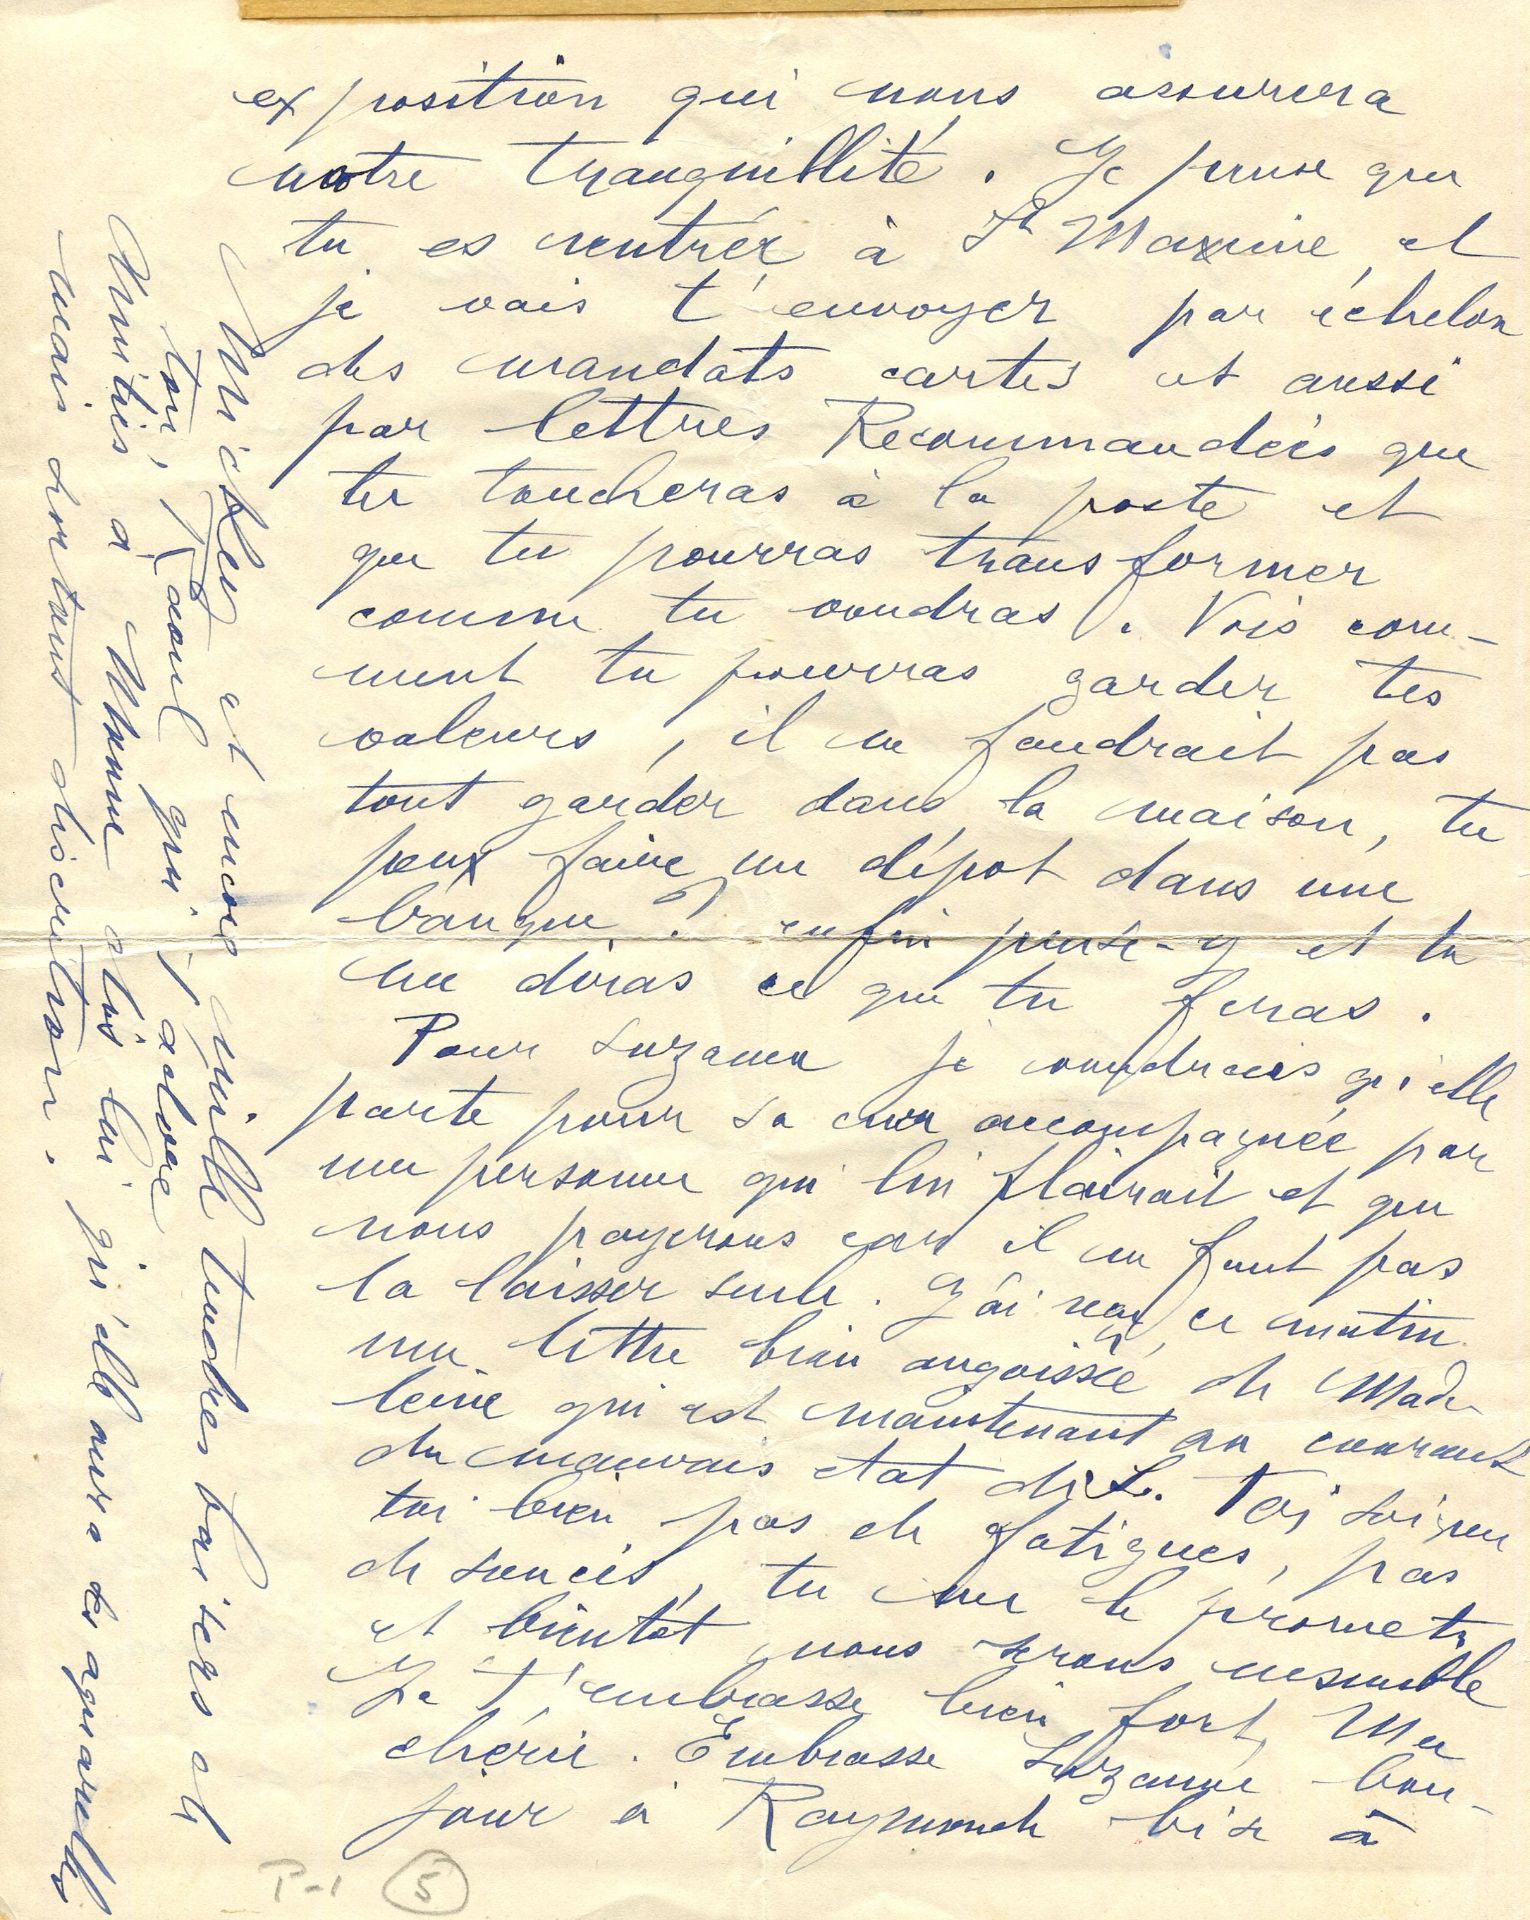 exposition qui nous assurera
notre tranquillité. Je pense que
tu es rentrée à St Maxime, et
je vais t'envoyer par échelon
des mandats cartes et aussi
par lettres Recommandées que
tu toucheras à la poste et
que tu pourras transformer
comme tu voudras. Vois com-
ment tu pourras garder tes
valeurs, il ne faudrait pas
tout garder dans la maison, tu
peux faire un dépot dans une
banque? enfin pense-y et tu
me diras ce que tu feras.
Pour Suzanne je voudrais qu'elle
parte pour sa cure accompagnée par
une personne qui lui plairait et que
nous payerons car il ne faut pas
la laisser seule. J'ai reçu ce matin
une lettre bien angoissée de Made
leine qui est maintenant au courant
du mauvais état de S. Toi soigne
toi bien pas de fatigues, pas
de soucis, tu me le promets
et bientôt nous serons ensemble
Je t'embrasse bien fort, Ma
chérie. Embrasse Suzanne bon-
jour à Raymonde bise à
et encore mille tendres baisers de
ton Raoul qui t'adore
Amitiés à Mme dis lui qu'elle aura les aquarelles
mais surtout discrétion.
P-1 5